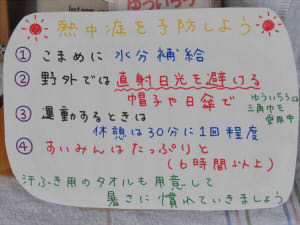 熱中症を予防しよう
① こまめに 水分補給
② 野外では直射日光を避ける
帽子や日傘で
ゆういちろうは
三角巾を
愛用中
③ 運動するときは
休憩は30分に1回程度
④ すいみんはたっぷりと
(6時間以上)
汗ふき用のタオルも用意して
暑さに慣れていきましょう